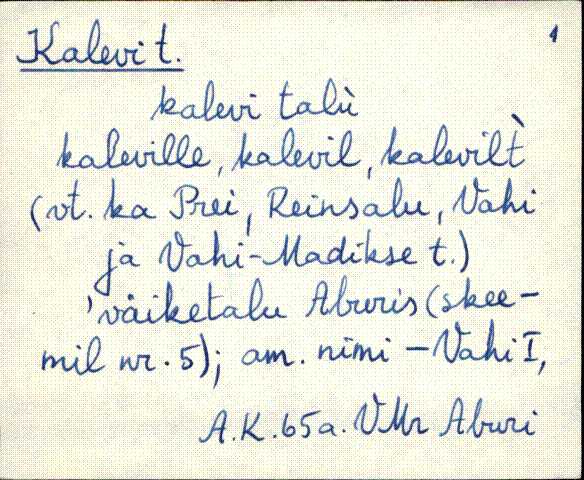 Kalevi t. 1
kalevi talù
kaleville, kalevil, kalevilt̀
(vt. ka Prei, Reinsalu, Vahi
ja Vahi-Madikse t.)
'väiketalu Aburis (skee-
mil nr. 5); am. nimi – Vahi I,
A.K. 65a. VMr Aburi